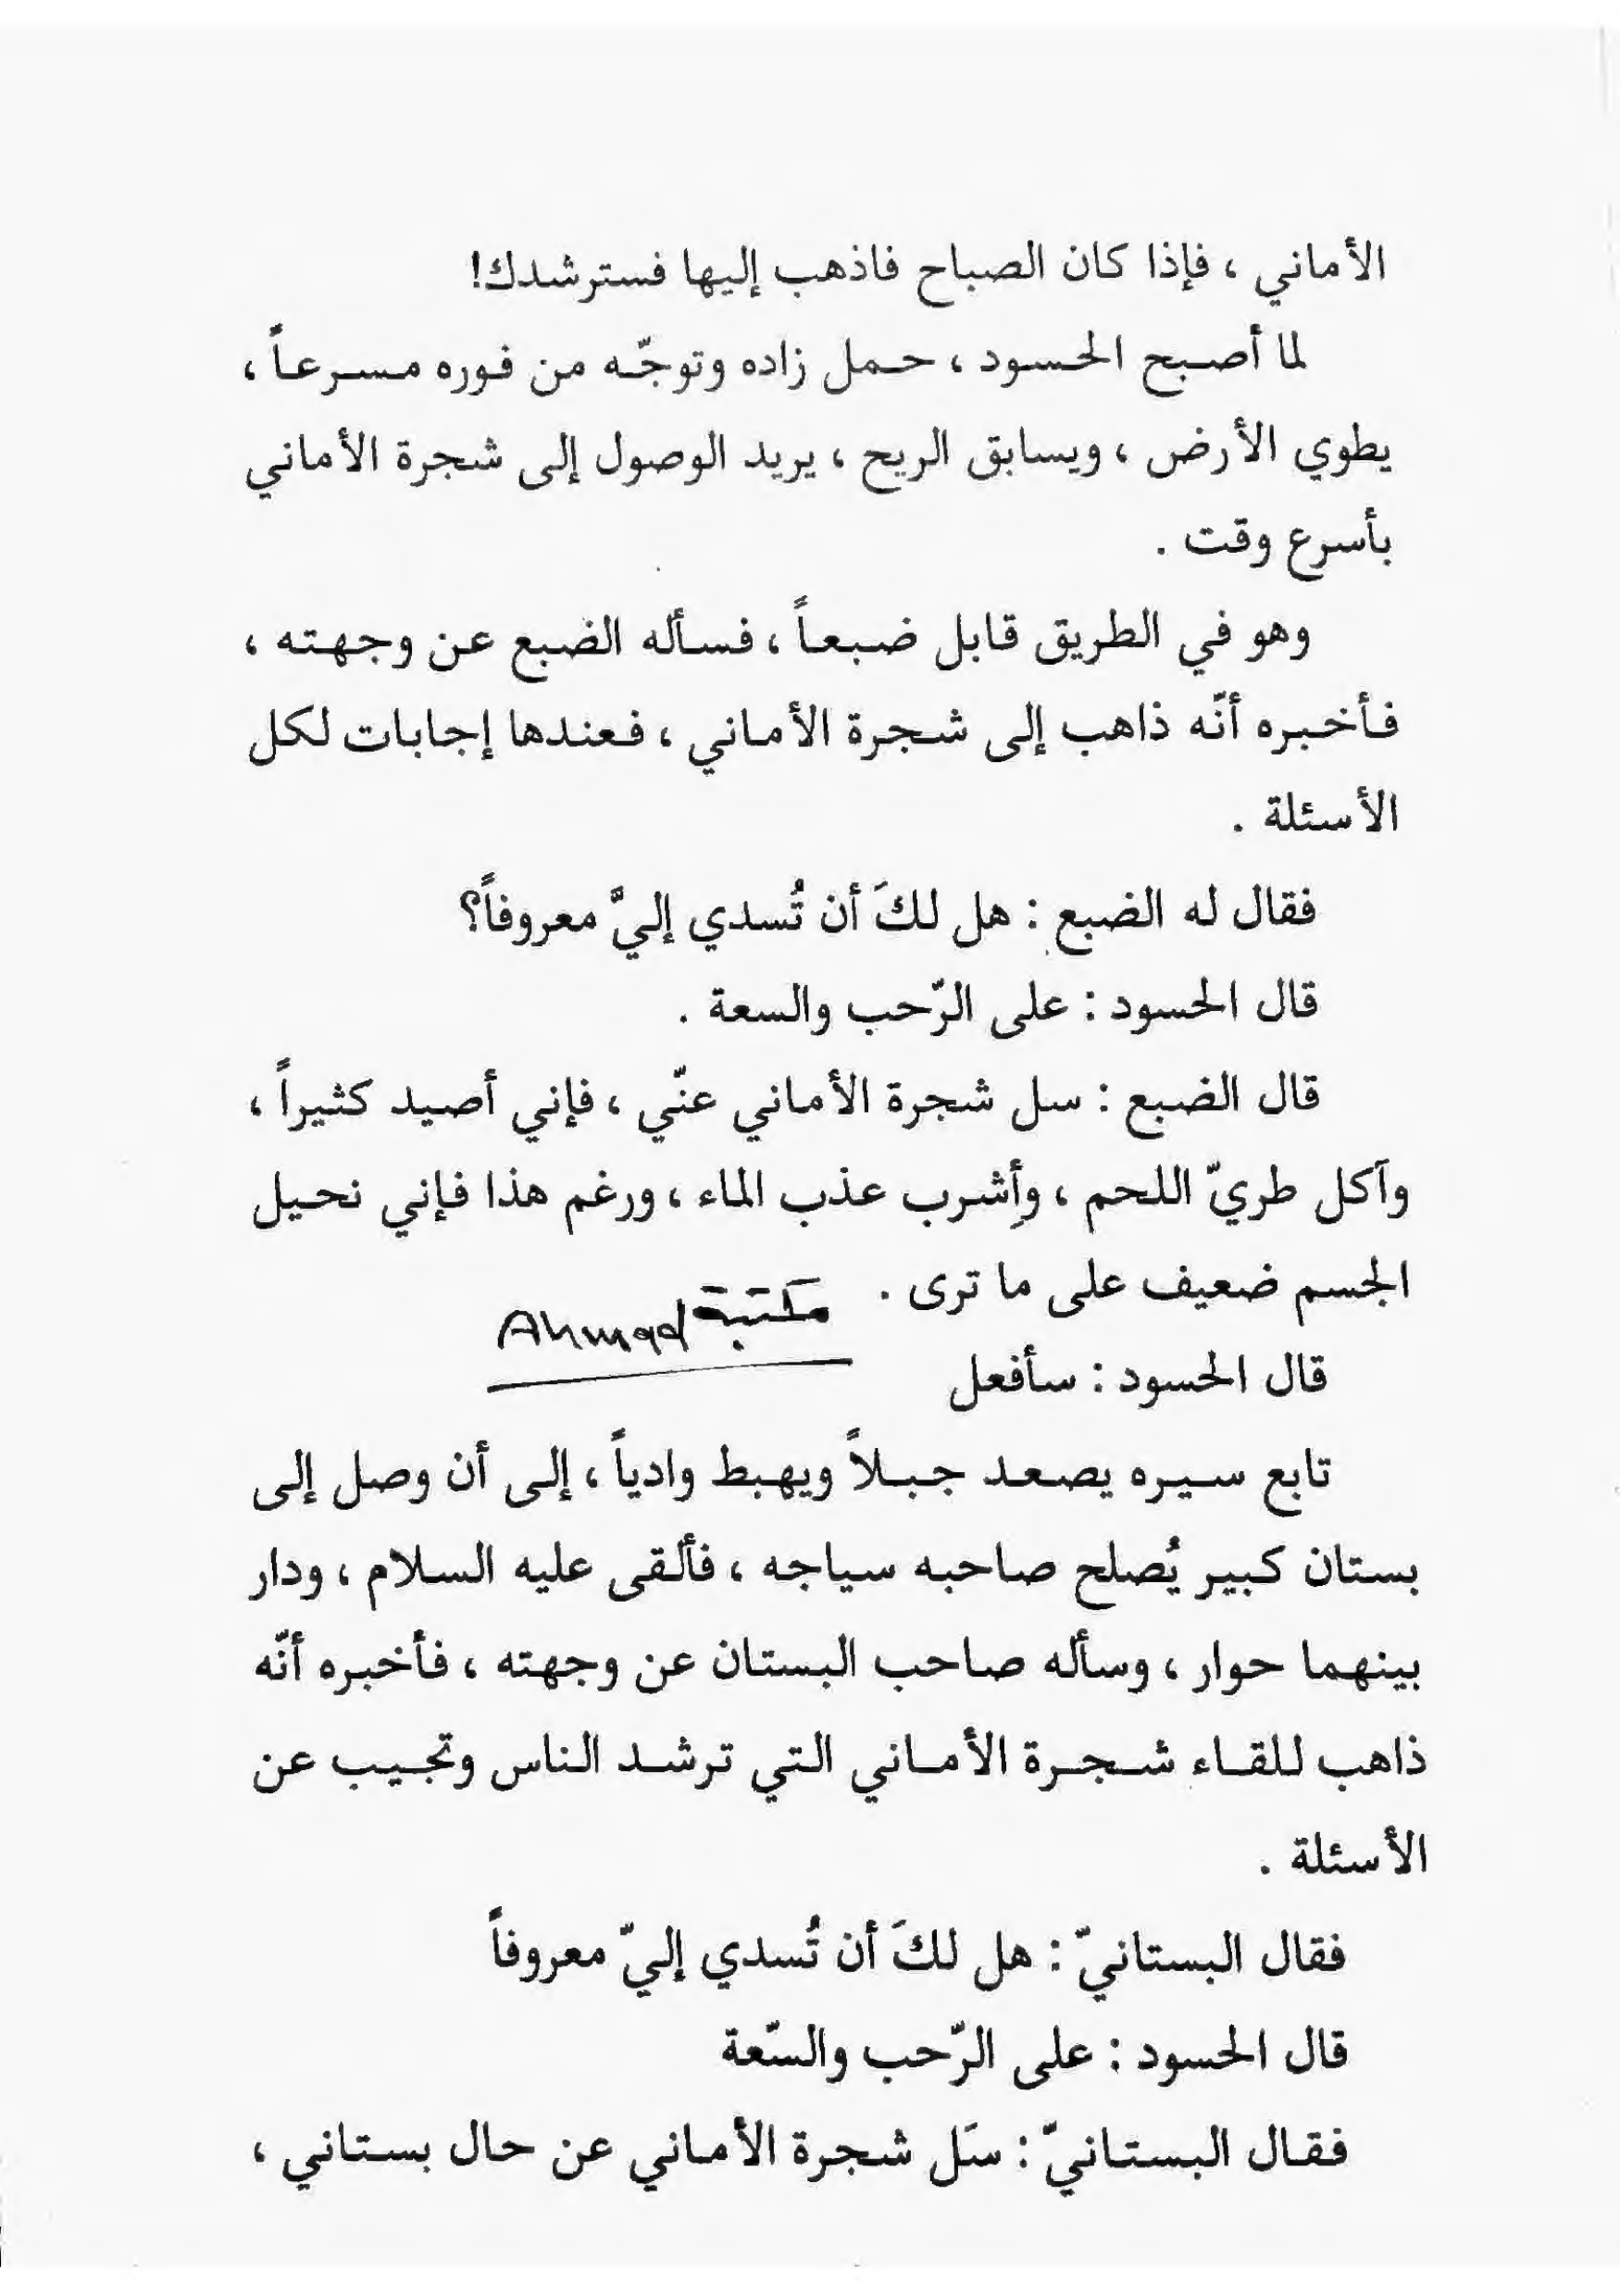 الأماني ، فإذا كان الصباح فاذهب إليها فسترشدك!
لما أصبح الحسود ، حمل زاده وتوجّه من فوره مسرعاً ،
يطوي الأرض ، ويسابق الريح ، يريد الوصول إلى شجرة الأماني
بأسرع وقت .
وهو في الطريق قابل ضبعاً ، فسأله الضبع عن وجهته ،
فأخبره أنّه ذاهب إلى شجرة الأماني ، فعندها إجابات لكل
الأسئلة .
فقال له الضبع : هل لكَ أن تُسدي إليَّ معروفاً؟
قال الحسود : على الرّحب والسعة .
قال الضبع : سل شجرة الأماني عنّي ، فإني أصيد كثيراً ،
وآكل طريّ اللحم ، وأشرب عذب الماء ، ورغم هذا فإني نحيل
الجسم ضعيف على ما ترى .
مكتبة Ahmad
قال الحسود : سأفعل
تابع سيره يصعد جبلاً ويهبط وادياً ، إلى أن وصل إلى
بستان كبير يُصلح صاحبه سياجه ، فألقى عليه السلام ، ودار
بينهما حوار ، وسأله صاحب البستان عن وجهته ، فأخبره أنّه
ذاهب للقاء شجرة الأماني التي ترشد الناس وتجيب عن
الأسئلة .
فقال البستانيّ : هل لكَ أن تُسدي إليّ معروفاً
قال الحسود : على الرّحب والسّعة
فقال البستانيّ : سَل شجرة الأماني عن حال بستاني ،